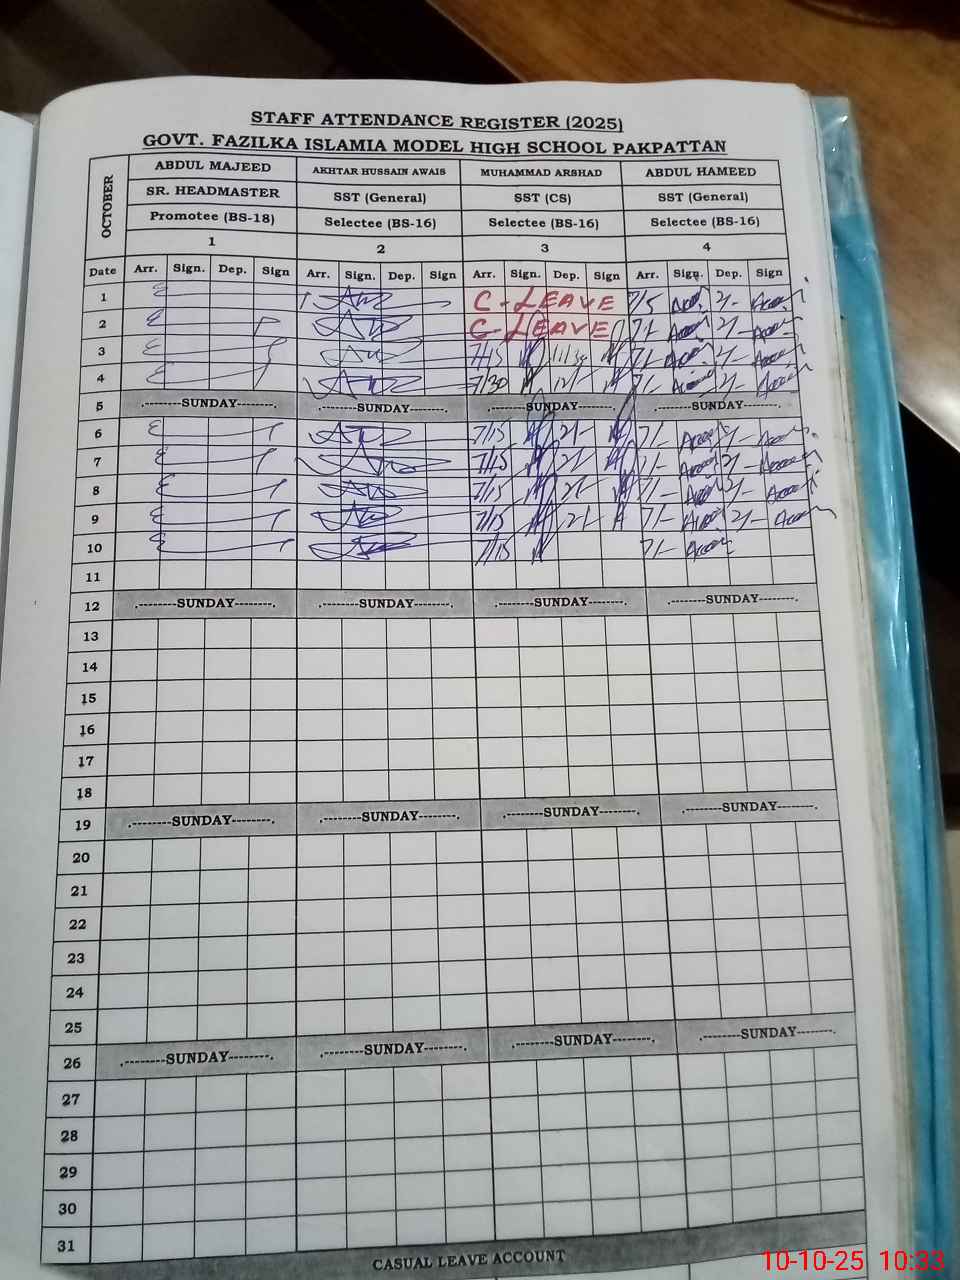 STAFF ATTENDANCE REGISTER (2025)
GOVT. FAZILKA ISLAMIA MODEL HIGH SCHOOL PAKPATTAN
OCTOBER
ABDUL MAJEED AKHTAR HUSSAIN AWAIS MUHAMMAD ARSHAD ABDUL HAMEED
SR. HEADMASTER SST (General) SST (CS) SST (General)
Promotee (BS-18) Selectee (BS-16) Selectee (BS-16) Selectee (BS-16)
1 2 3 4
Date Arr. Sign. Dep. Sign Arr. Sign. Dep. Sign Arr. Sign. Dep. Sign Arr. Sign. Dep. Sign
1 C-LEAVE 7/5 2/-
2 C-LEAVE 7/- 2/-
3 7/15 11/30 7/- 2/-
4 7/30 12/- 7/- 2/-
5 .--------SUNDAY--------. .--------SUNDAY--------. .--------SUNDAY--------. .--------SUNDAY--------.
6 7/15 2/- 7/- 2/-
7 7/15 2/- 7/- 2/-
8 7/15 2/- 7/- 2/-
9 7/15 2/- 7/- 2/-
10 7/15 7/-
11
12 .--------SUNDAY--------. .--------SUNDAY--------. .--------SUNDAY--------. .--------SUNDAY--------.
13
14
15
16
17
18
19 .--------SUNDAY--------. .--------SUNDAY--------. .--------SUNDAY--------. .--------SUNDAY--------.
20
21
22
23
24
25
26 .--------SUNDAY--------. .--------SUNDAY--------. .--------SUNDAY--------. .--------SUNDAY--------.
27
28
29
30
31
CASUAL LEAVE ACCOUNT
10-10-25 10:33